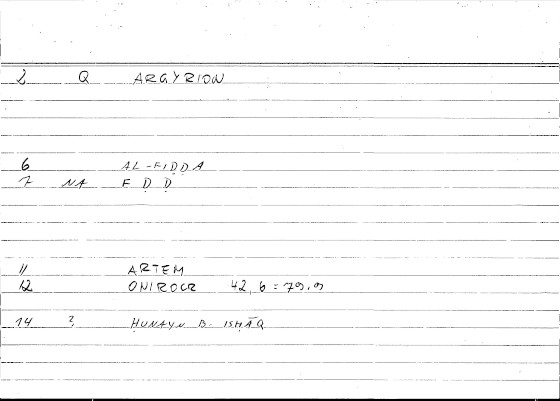 2 Q ARGYRION
6 AL-FIḌḌA
7 NA F Ḍ Ḍ
11 ARTEM
12 ONIROCR 42,6 = 79,9
14 ? ḤUNAYN B. ISḤĀQ